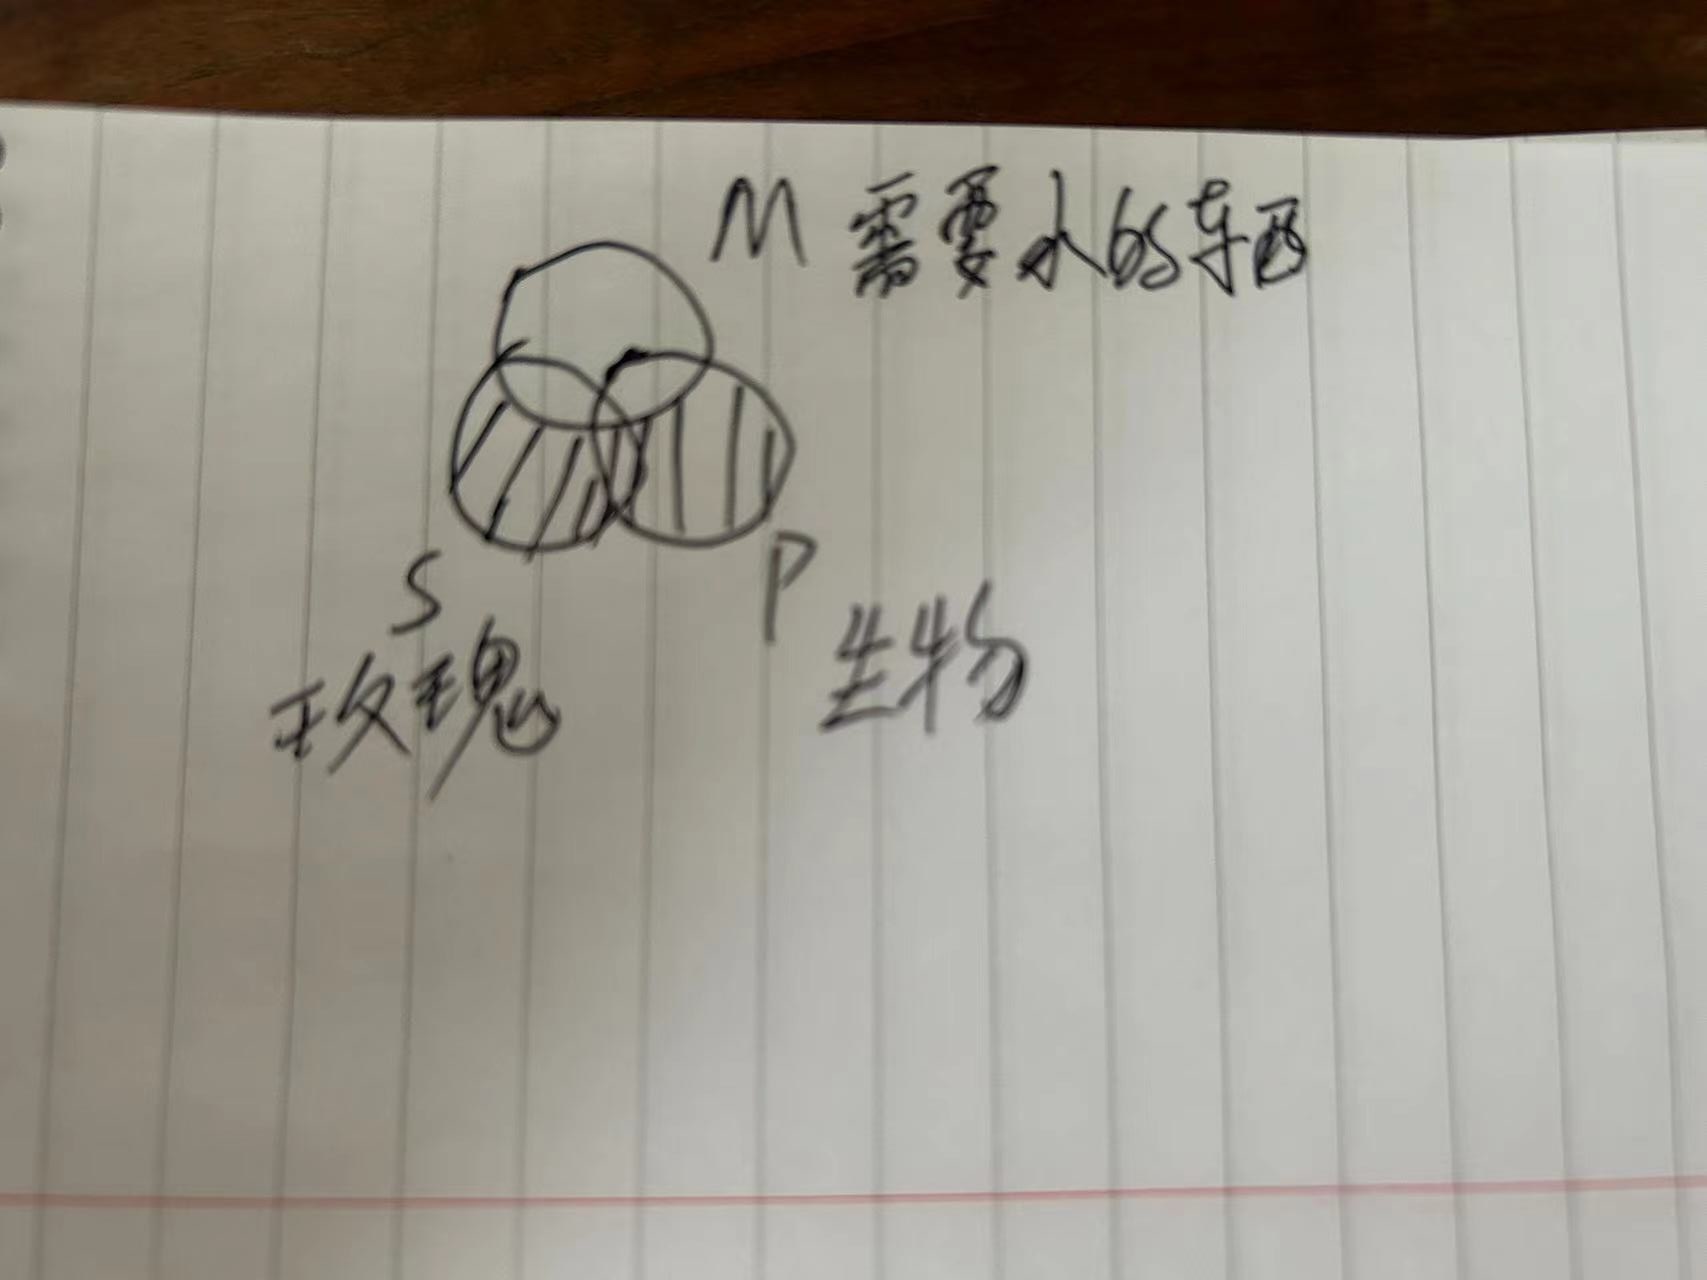 M 需要水的东西
S
P
玫瑰
生物